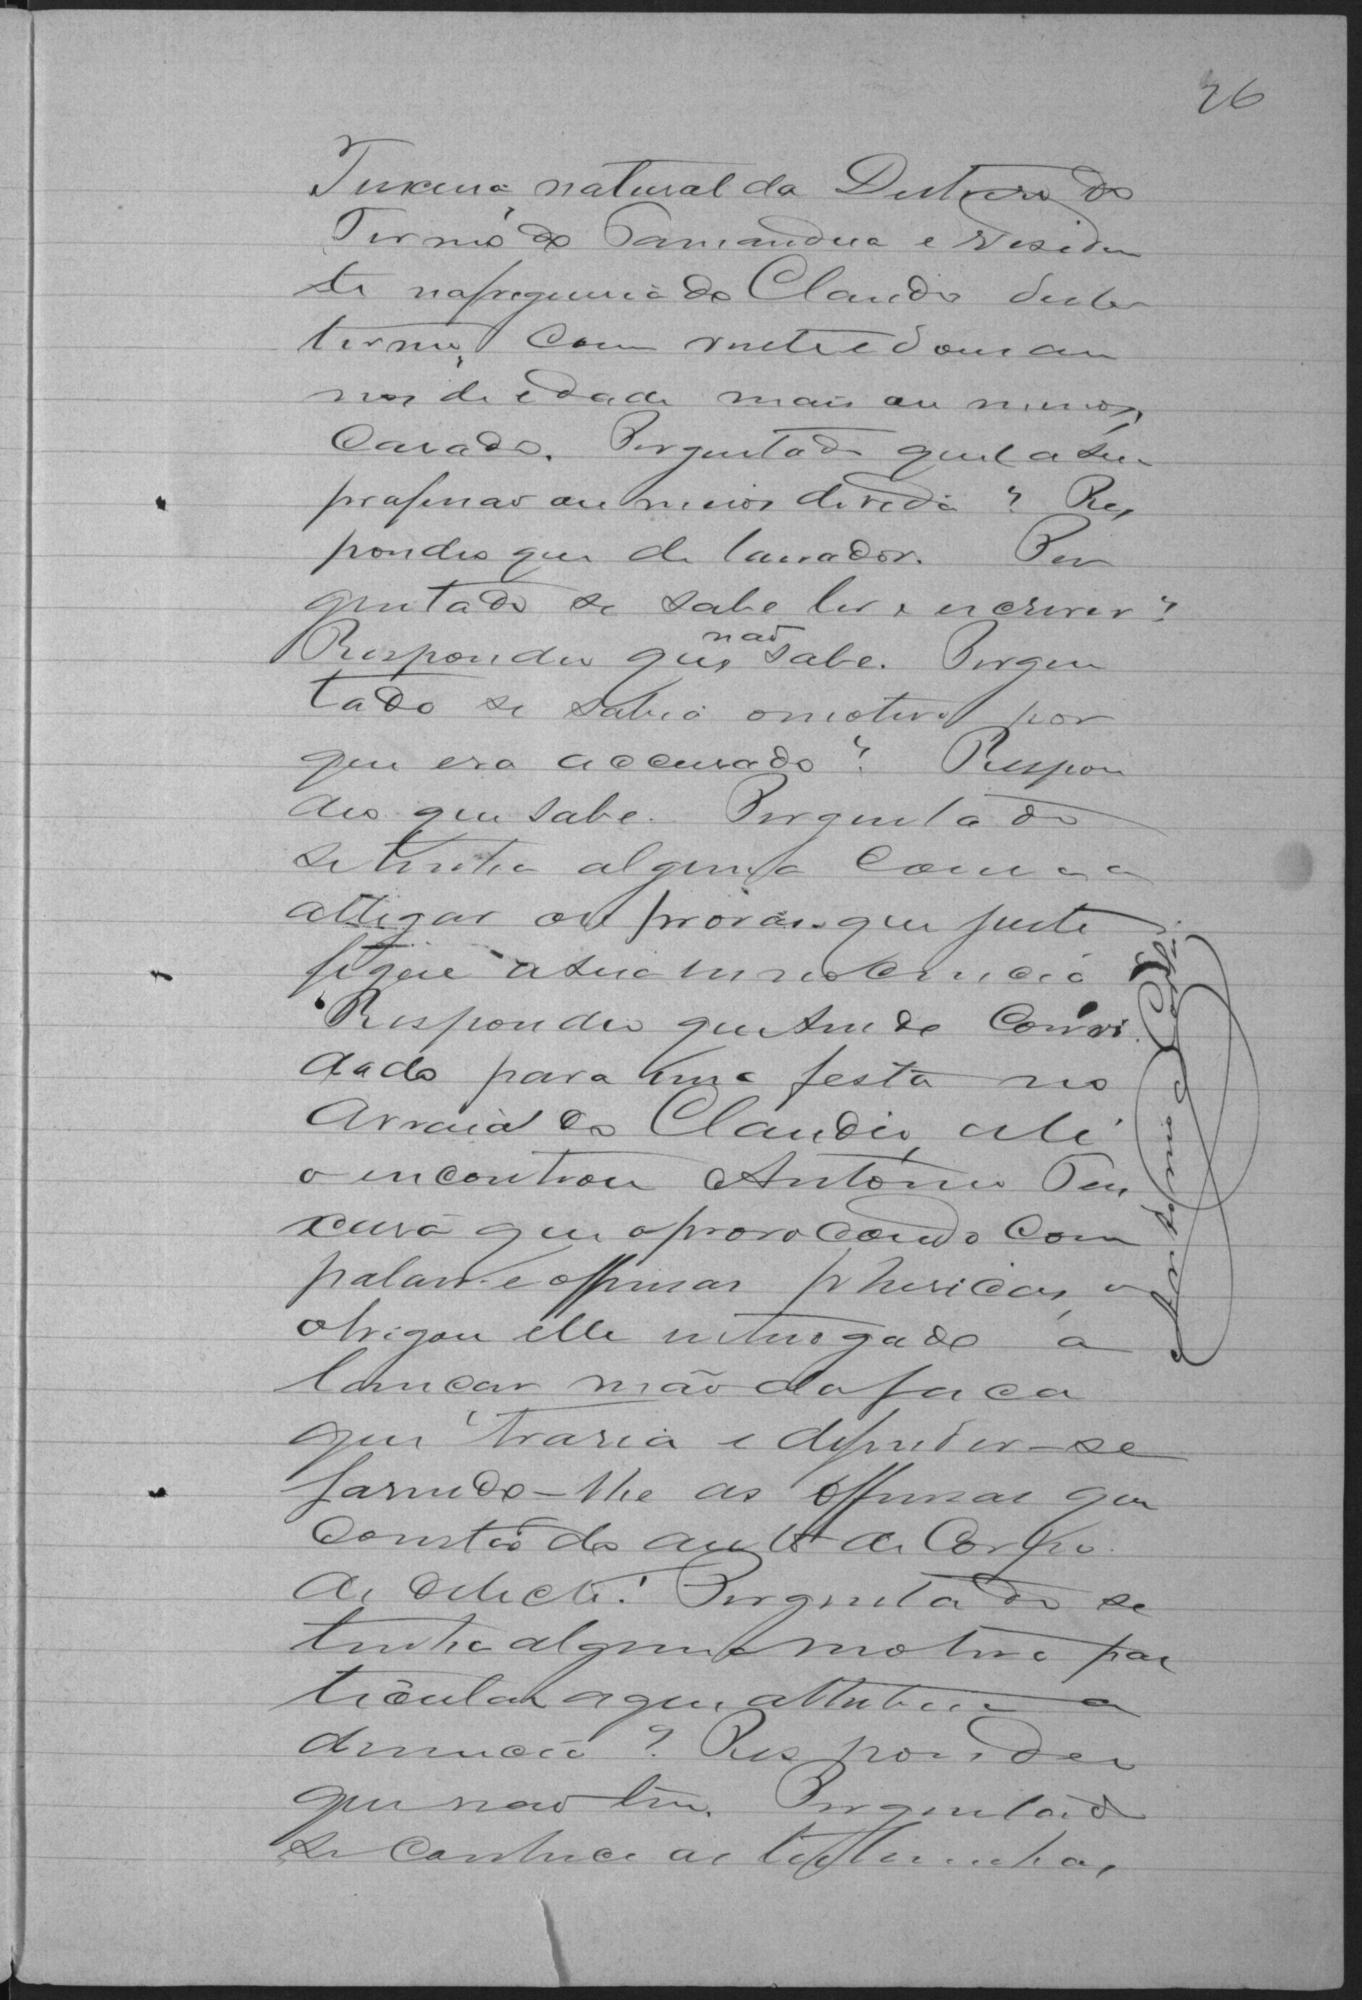 26
Teixeira natural da Desterro do
Termo do Tamandua e residen
te na freguesia do Claudio deste
termo, com vinte e dous an
nos de edade mais ou menos,
Casado. Perguntado qual a sua
profissão ou meios de vida? Res
pondeo que de lavrador. Per
guntado se sabe ler e escrever?
Respondeu que não sabe. Pergun
tado se sabia o motivo por
que era accusado? Respon
deo que sabe. Perguntado
se tinha alguma cousa a
allegar ou provas que justi
fique a sua innocencia
Respondeo que sendo convi
dado para uma festa no
Arraial do Claudio, ali
o encontrou Antonio Tei
xeira que o provocando com
palavras e offensas phisicas, o
obrigou elle interrogado a
lançar mão da faca
que trazia e defender-se
fazendo-lhe as offensas que
constão do auto de Corpo
de delicto. Perguntado se
tinha algum motivo par
ticular a que attribua a
denuncia? Respondeu
que não tem. Perguntado
se conhece as testemunhas,
Antonio